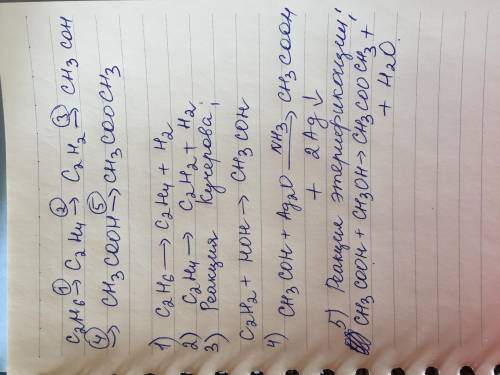 C2H6 ①→ C2H4 ②→ C2H2 ③→ CH3COH
④→ CH3COOH ⑤→ CH3COOCH3
1) C2H6 → C2H4 + H2
2) C2H4 → C2H2 + H2
3) Реакция Кучерова;
C2H2 + HOH → CH3COH
4) CH3COH + Ag2O NH3→ CH3COOH
+ 2Ag↓
5) Реакция этерификации;
CH3COOH + CH3OH → CH3COOCH3 +
+ H2O.